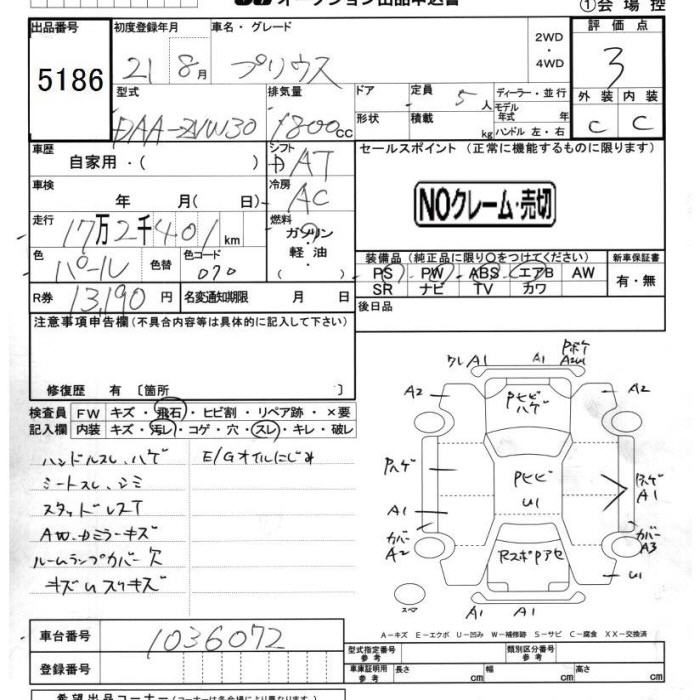 オークション出品申込書
①会場控
出品番号
5186
初度登録年月
21 8月
車名・グレード
プリウス
2WD
・
4WD
評価点
3
外装 内装
C C
型式
DAA-ZVW30
排気量
1800cc
ドア
形状
定員
5人
積載
kg
ディーラー・並行
モデル年式 年
ハンドル 左・右
車歴
自家用・( )
シフト
AT
車検
年 月( 日)
冷房
AC
走行
17万2千401km
燃料
ガソリン
・
軽油
・( )
色
パール
色替
カラーコード
070
R券
13,190円
名変通知期限 月 日
セールスポイント (正常に機能するものに限ります)
NOクレーム・売切
装備品 (純正品に限り〇をつけてください)
PS PW ABS エアB AW
SR ナビ TV カワ
新車保証書
有・無
後日品
注意事項申告欄(不具合内容等は具体的に記入して下さい)
修復歴 有 〔箇所 〕
検査員 FW キズ・飛石・ヒビ割・リペア跡・×要
記入欄 内装 キズ・汚レ・コゲ・穴・スレ・キレ・破レ
ハンドルスレ、ハゲ
E/Gオイルにじみ
シートスレ、シミ
スタッドレスT
AW、カミラーキズ
ルームランプカバー欠
キズUスリキズ
ワレA1 A1 Pボケ
A2 A2
Pヒビ
ハゲ
Pハゲ
Pヒビ
U1
Pハゲ
A1
A1
カバー
A2
カバー
A3
RスポPアセ
U1
スペア
A1 A1
A-キズ E-エクボ U-凹み W-補修跡 S-サビ C-腐食 XX-交換済
車台番号
1036072
登録番号
型式指定番号
参考
類別区分番号
参考
車庫証明用
参考
長さ 幅 高さ
cm cm cm
希望出品コーナー(コーナーは各会場により異なります)